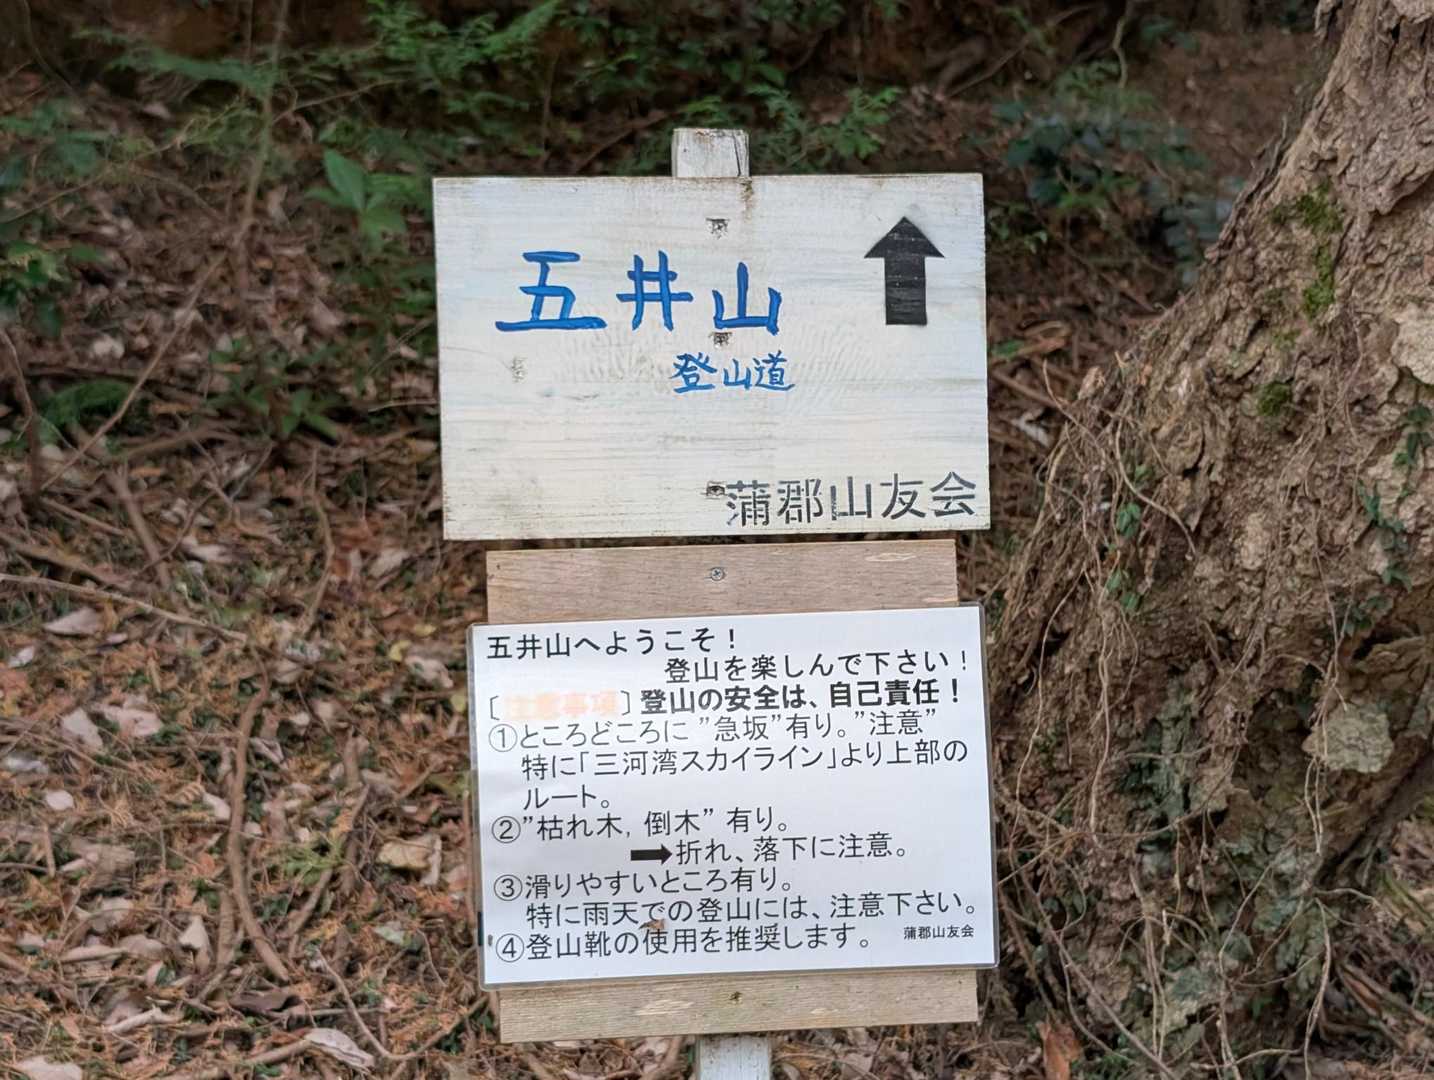 五井山
登山道
蒲郡山友会
五井山へようこそ！
登山を楽しんで下さい！
[注意事項] 登山の安全は、自己責任！
①ところどころに ”急坂”有り。”注意”
特に「三河湾スカイライン」より上部の
ルート。
②”枯れ木, 倒木” 有り。
➡折れ、落下に注意。
③滑りやすいところ有り。
特に雨天での登山には、注意下さい。
④登山靴の使用を推奨します。 蒲郡山友会